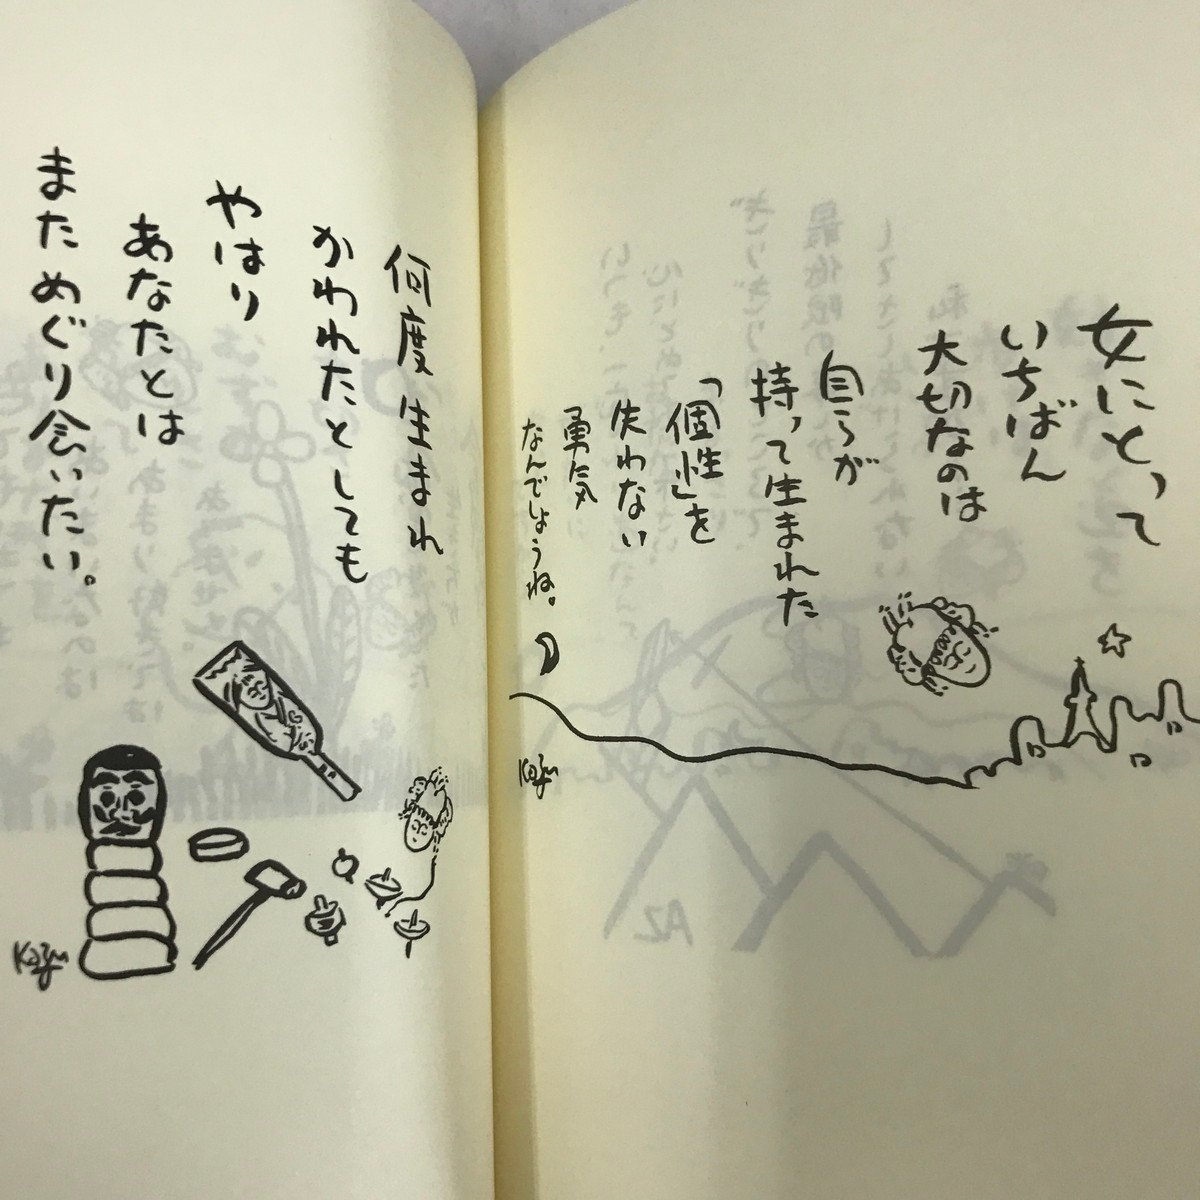 女にとって
いちばん
大切なのは
自らが
持って生まれた
「個性」を
失わない
勇気
なんでしょうね。
Kazu
何度生まれ
かわれたとしても
やはり
あなたとは
まためぐり会いたい。
Kazu